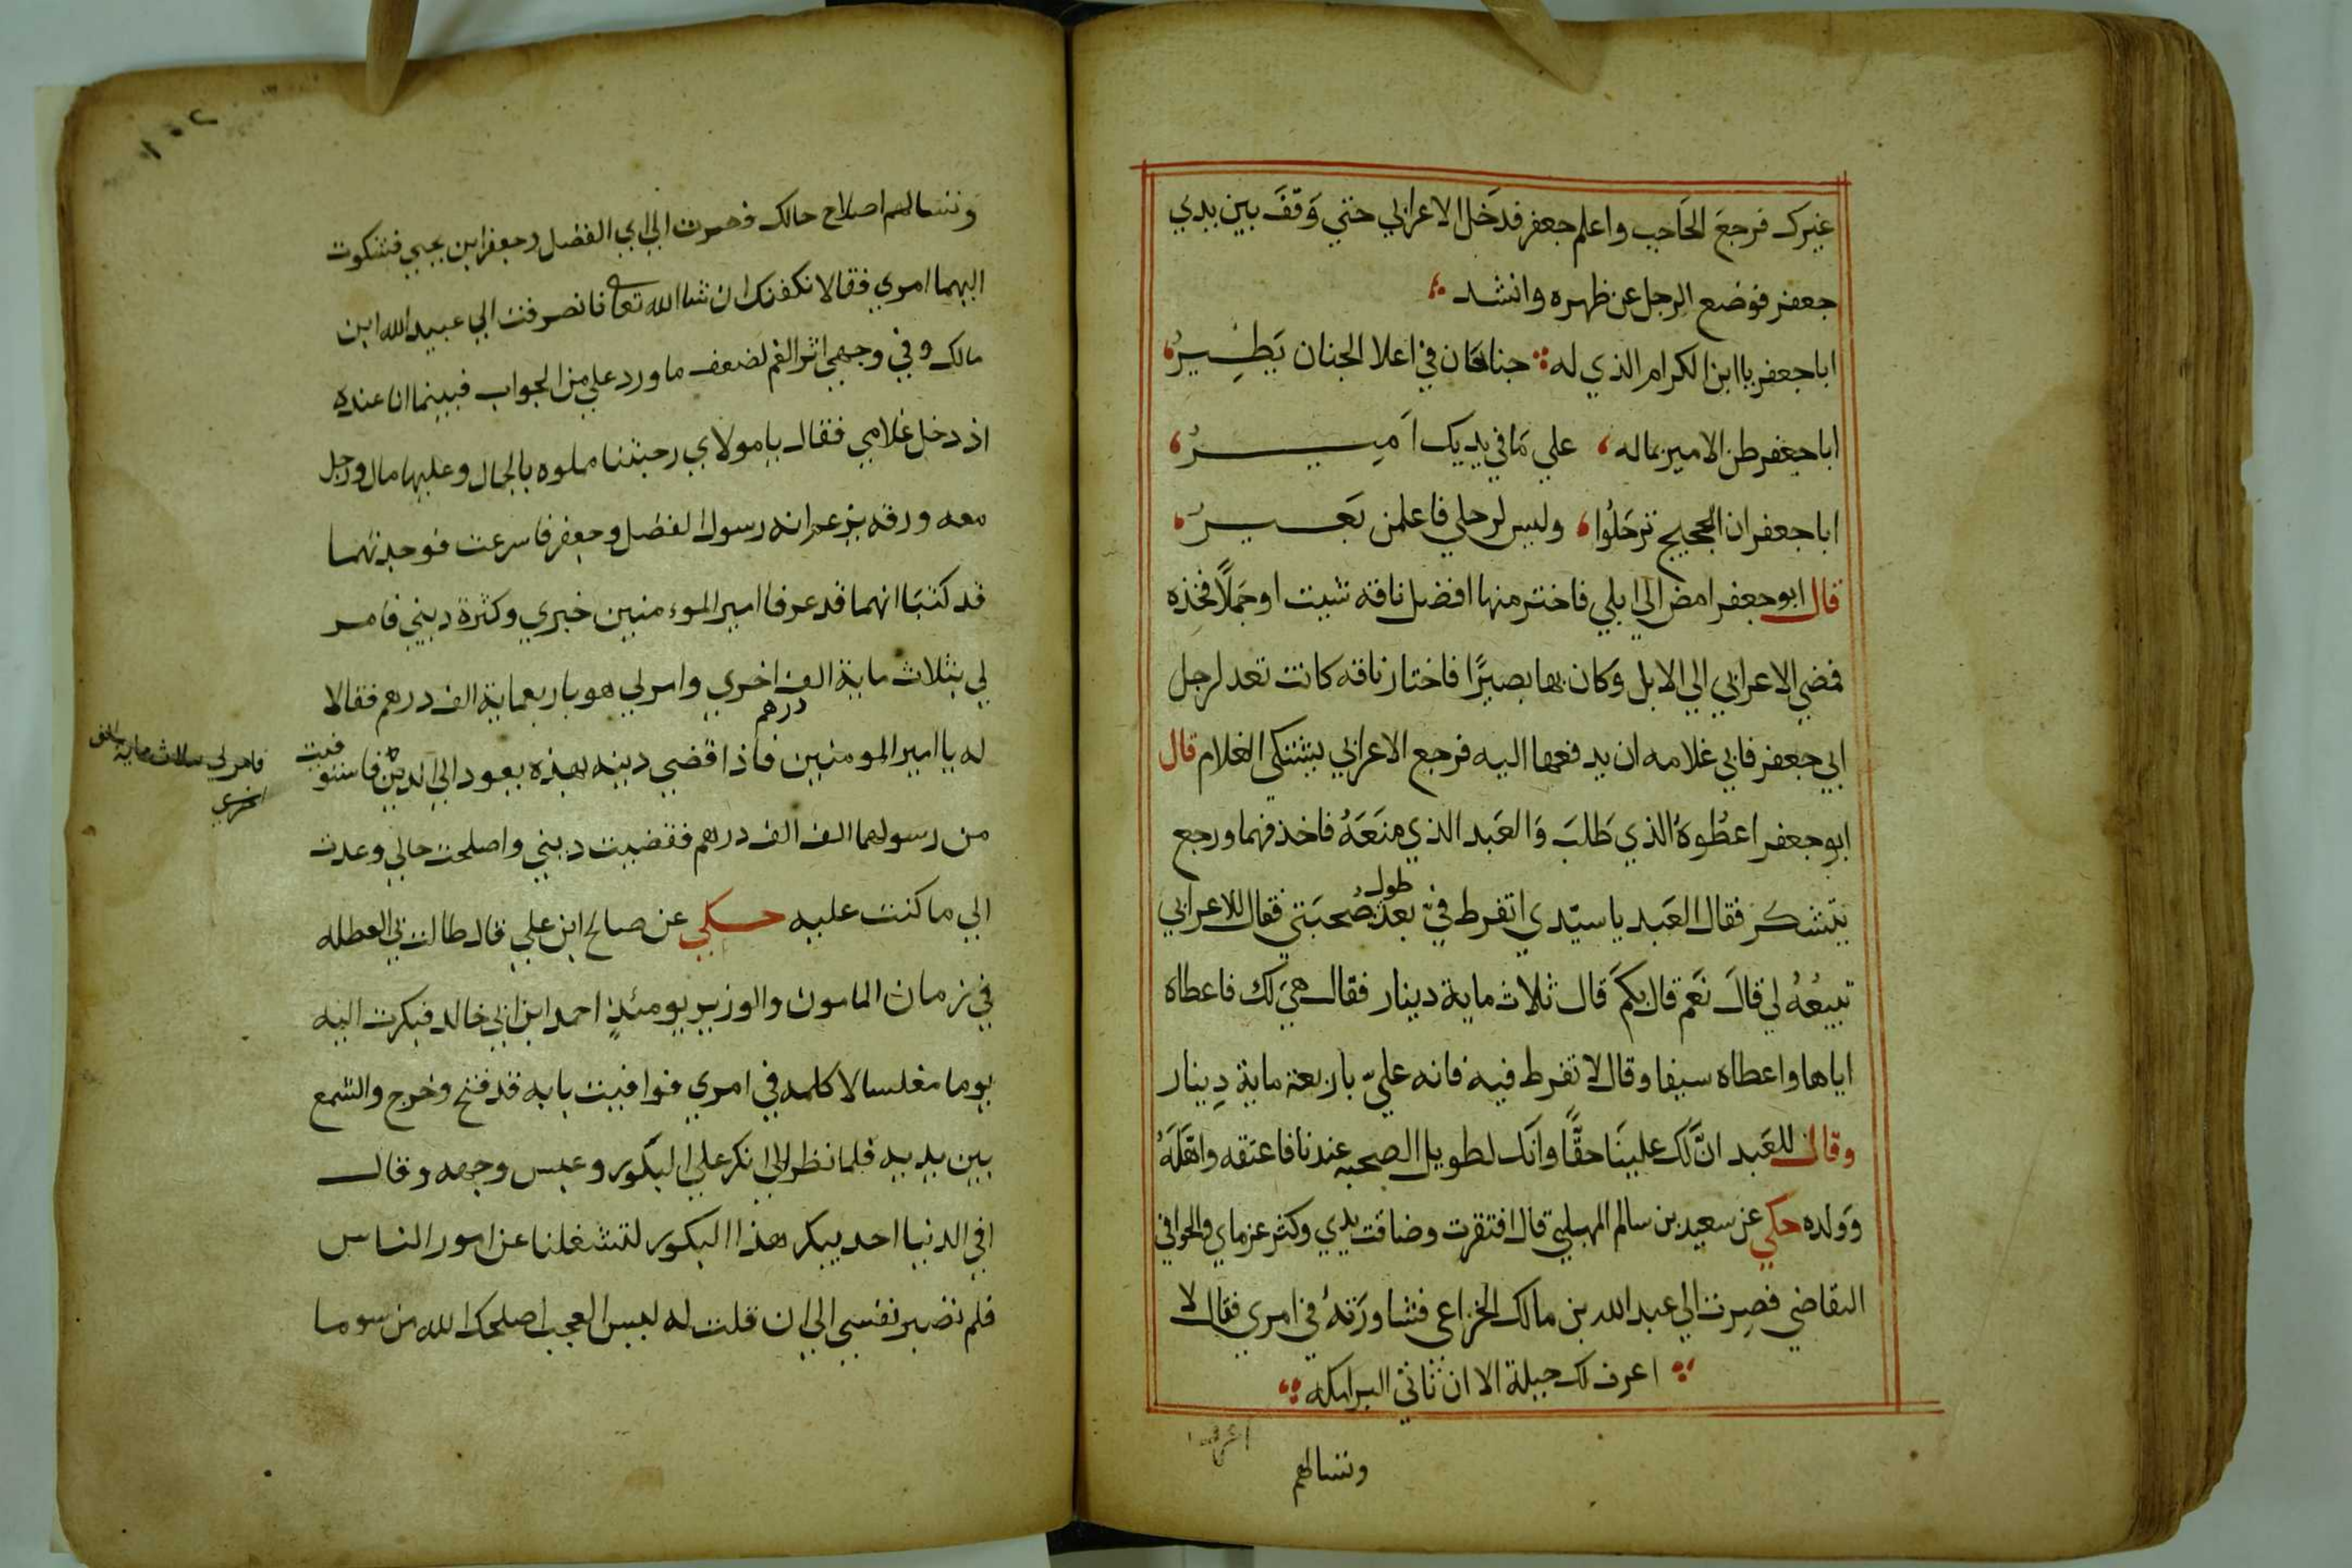 غيرك فرجع الحَاجب واعلم جعفر فدَخل الاعرابي حتي وَقفَ بين يدي
جعفر فوضع الرجل عن ظهره وانشد
اباجعفر ياابن الكرام الذي له جناحان في اعلا الجنان يَطِيرُ
اباجعفر ظن الامير بماله علي مَا في يديك اَمِيرُ
اباجعفر ان الحجيج ترحَلُوا وليس لرحلي فاعلمن بَعيرُ
قال ابوجعفر امض الي ابلي فاختر منها افضل ناقه شيت اوجَملًا فخذه
فمضي الاعرابي الي الابل وَكان بها بصيرًا فاختار ناقه كانت تعد لرجل
ابي جعفر فابي غلامه ان يدفعها اليه فرجع الاعرابي يشتكي الغلام قال
ابوجعفر اعطُوهُ الذي طَلبَ وَالعَبد الذي منَعَهُ فاخذهما ورجع
يتشكر فقال العَبد ياسيّدي اتفرط فيّ بعد طول صُحبَتي فقال للاعرابي
تبيعُهُ لي قالَ نَعم قال بكمَ قال ثلاث ماية دينار فقال هيَ لك فاعطاه
اياها واعطاه سيفا وقال لا تفرط فيه فانه عليّ باربعة ماية دِينار
وقال للعَبد انَّ لك علينَا حقًّا وانك لطويل الصحبه عندنا فاعتقه واهَلَهُ
وَولده حكي عن سعيد بن سالم المهبلي قال افتقرت وضاقت يدي وكثر غرماي والحوا في
التقاضي فصِرت الي عبد الله بن مالك الخزاعي فشاورَتهُ في امري فقال لا
اعرف لك حيلة الا ان تاتي البرامكه
ونسالهم
ونسالهم اصلاح حالك فصرت الي ابي الفضل وجعفر ابن يحيي فشكوت
اليهما امري فقالا نكفنك ان شاالله تعا فانصرفت الي عبيد الله ابن
مالك وفي وجهي اثر الغم لضعف ما ورد علي من الجواب فبينما انا عنده
اذ دخل غلامي فقال يامولاي رحبتنا مملوه بالجمال وعليها مال ورجل
معه ورقه يزعم انه رسول الفضل وجعفر فاسرعت فوجدتهما
قد كتبَا انهما قد عرفا امير الموءمنين خبري وكثرة ديني فامر
لي بثلاث ماية الف اخري وامر لي هو باربعماية الف درهم فقالا
درهم
له يا امير المومنين فاذا قضي دينه بهذه يعود الي الدين فاستوفيت
فامر لي بثلاث ماية الف
اخري
من رسولهما الف الف درهم فقضيت ديني واصلحت حالي وعدت
الي ما كنت عليه حكي عن صالح ابن علي قال طالت بي العطله
في زمان المامون والوزير يومئذٍ احمد ابن ابي خالد فبكرت اليه
يوما مغلسا لاكلمه في امري فوافيت بابه قد فتح وخرج والشمع
بين يديه فلما نظر الي انكر علي البكور وعبس وجهه وقال
افي الدنيا احد يبكر هذا البكور لتشغلنا عن امور الناس
فلم تصبر نفسي الي ان قلت له ليس العجب اصلحك الله من سوما